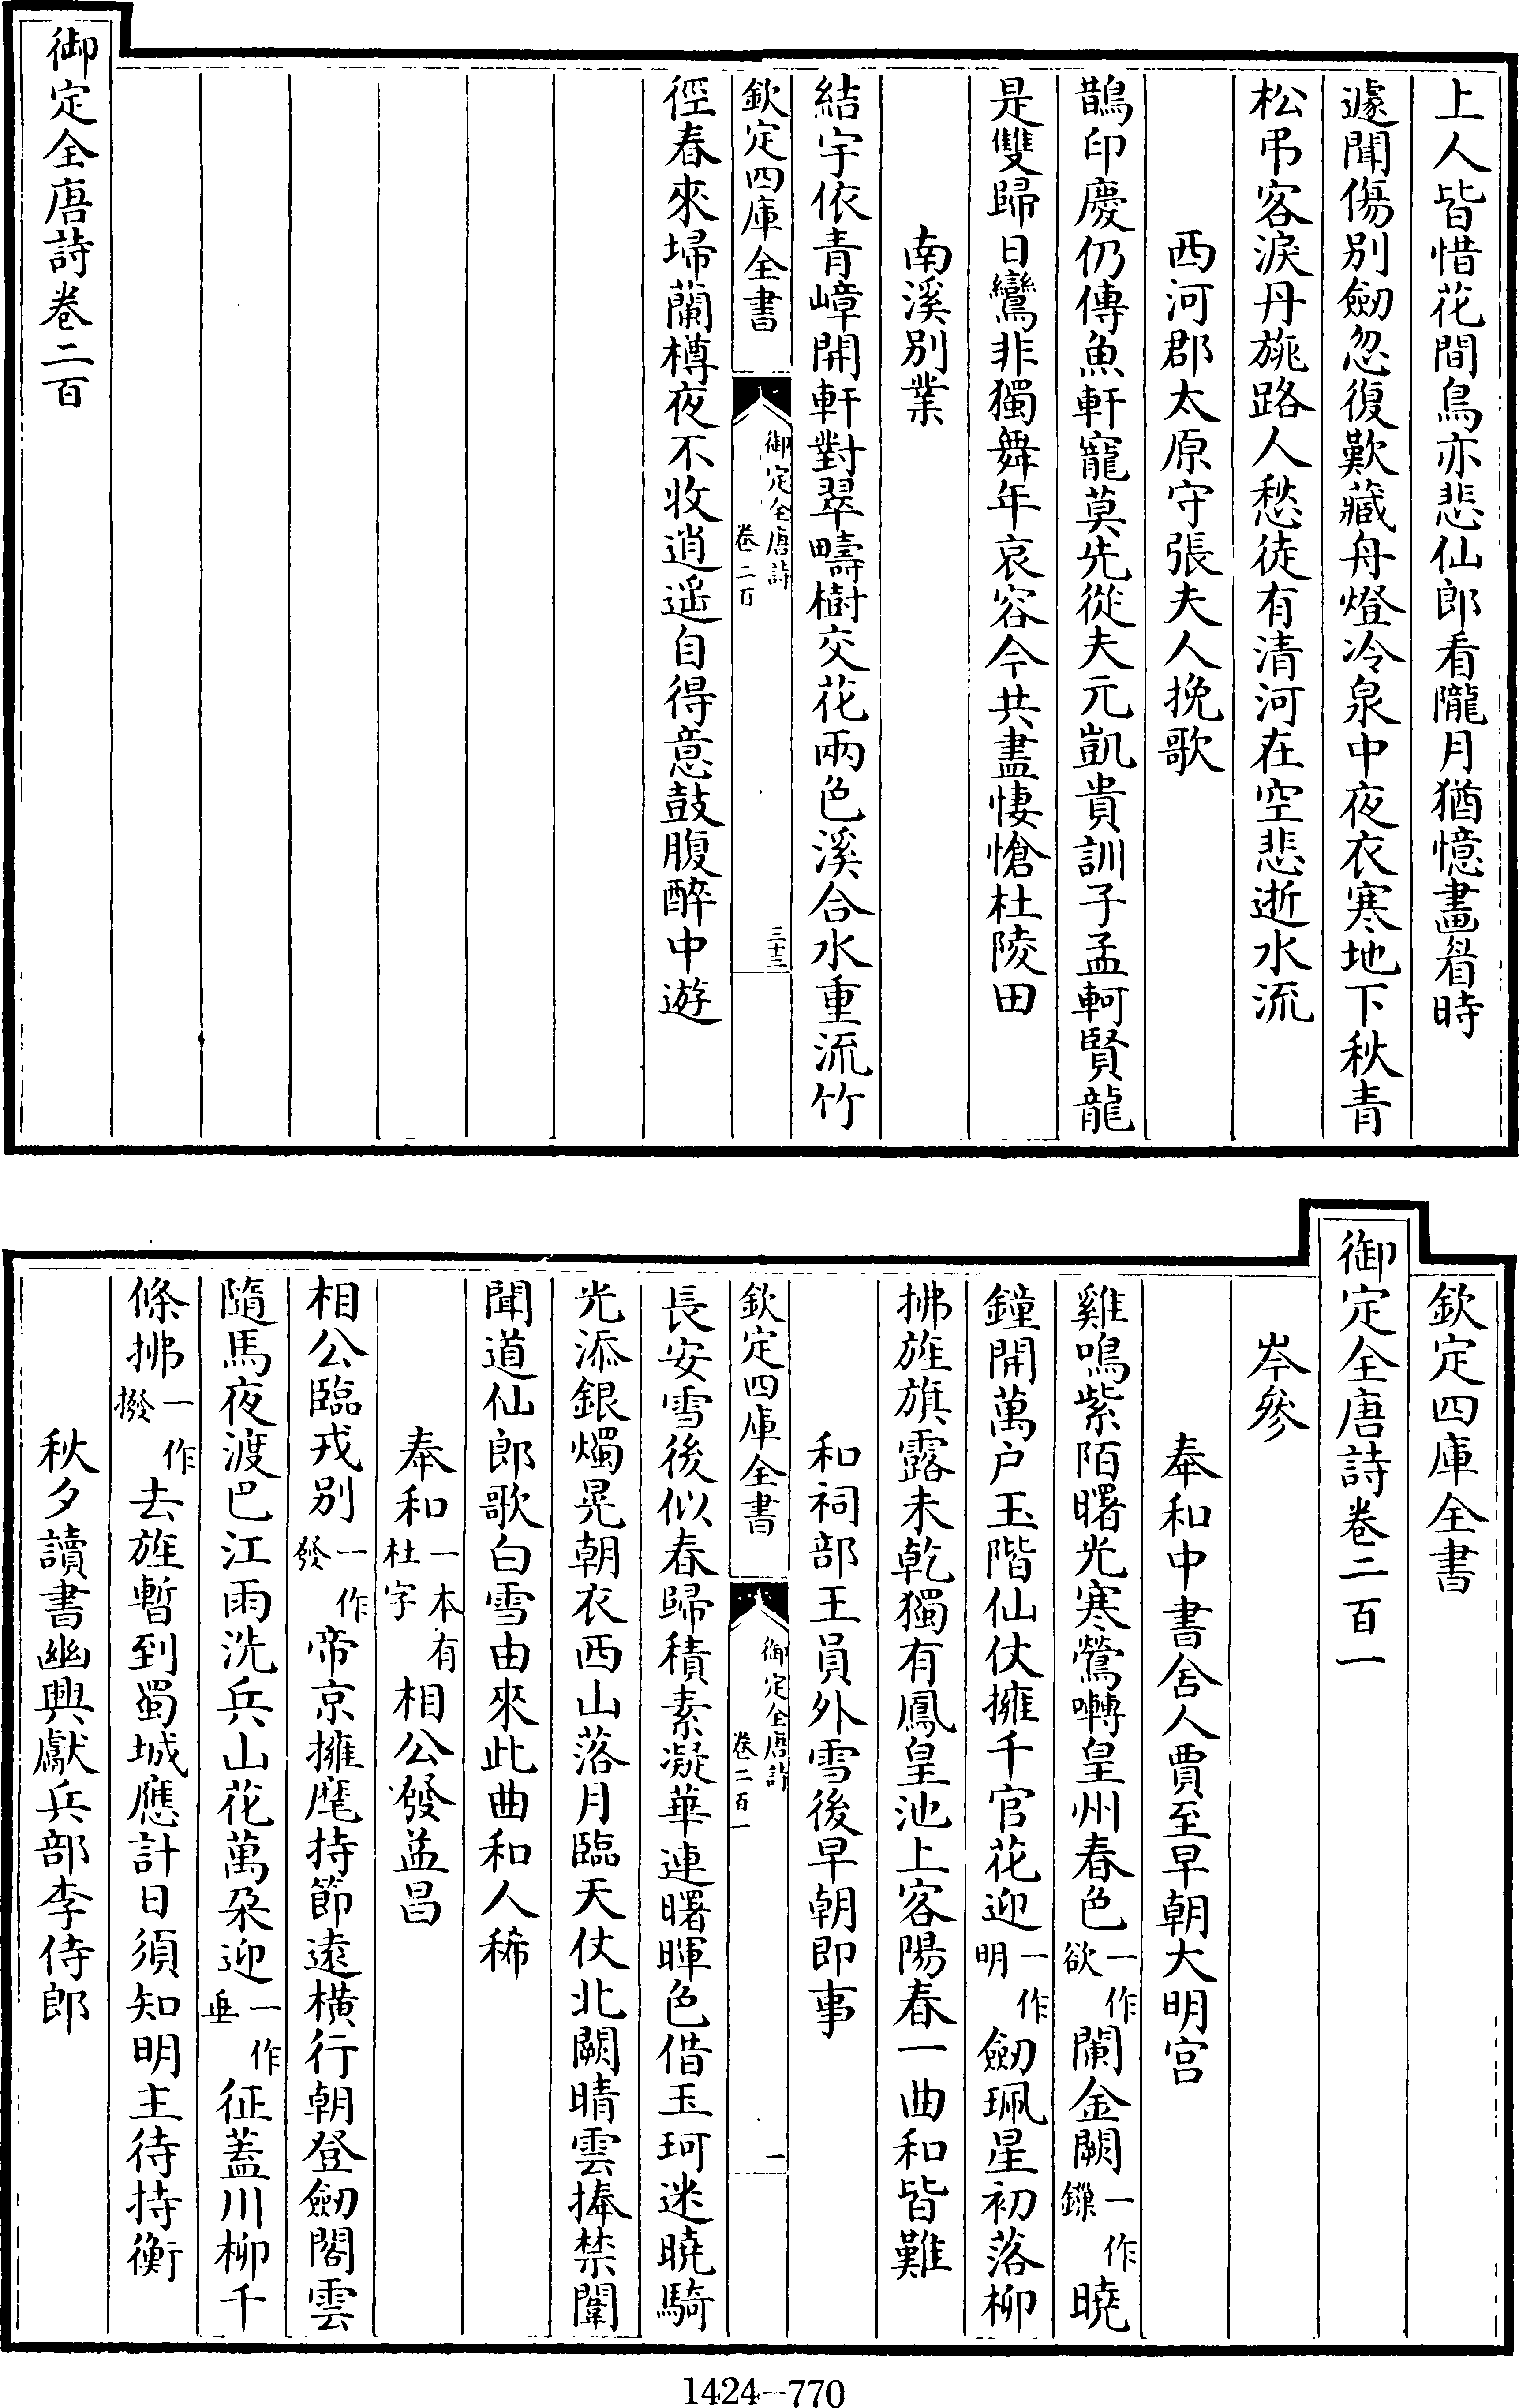 上人皆惜花間鳥亦悲仙郎看隴月猶憶畫眉時
遽聞傷別劒忽復歎藏舟燈冷泉中夜衣寒地下秋青
松弔客淚丹旐路人愁徒有清河在空悲逝水流
西河郡太原守張夫人挽歌
鵲印慶仍傳魚軒寵莫先從夫元凱貴訓子孟軻賢龍
是雙歸日鸞非獨舞年哀容今共盡悽愴杜陵田
南溪別業
結宇依青嶂開軒對翠疇樹交花兩色溪合水重流竹
欽定四庫全書
御定全唐詩
卷二百
三十三
徑春來埽蘭樽夜不收逍遥自得意鼓腹醉中遊
御定全唐詩卷二百
欽定四庫全書
御定全唐詩卷二百一
岑參
奉和中書舍人賈至早朝大明宫
雞鳴紫陌曙光寒鶯囀皇州春色一作欲闌金闕一作鏁曉
鐘開萬户玉階仙仗擁千官花迎一作明劒珮星初落柳
拂旌旗露未乾獨有鳳皇池上客陽春一曲和皆難
和祠部王員外雪後早朝即事
欽定四庫全書
御定全唐詩
卷二百一
一
長安雪後似春歸積素凝華連曙暉色借玉珂迷曉騎
光添銀燭晃朝衣西山落月臨天仗北闕晴雲捧禁闈
聞道仙郎歌白雪由來此曲和人稀
奉和一本有杜字相公發益昌
相公臨戎別一作發帝京擁麾持節逺橫行朝登劒閣雲
隨馬夜渡巴江雨洗兵山花萬朶迎一作垂征蓋川柳千
條拂一作撥去旌暫到蜀城應計日須知明主待持衡
秋夕讀書幽興獻兵部李侍郎
1424—770